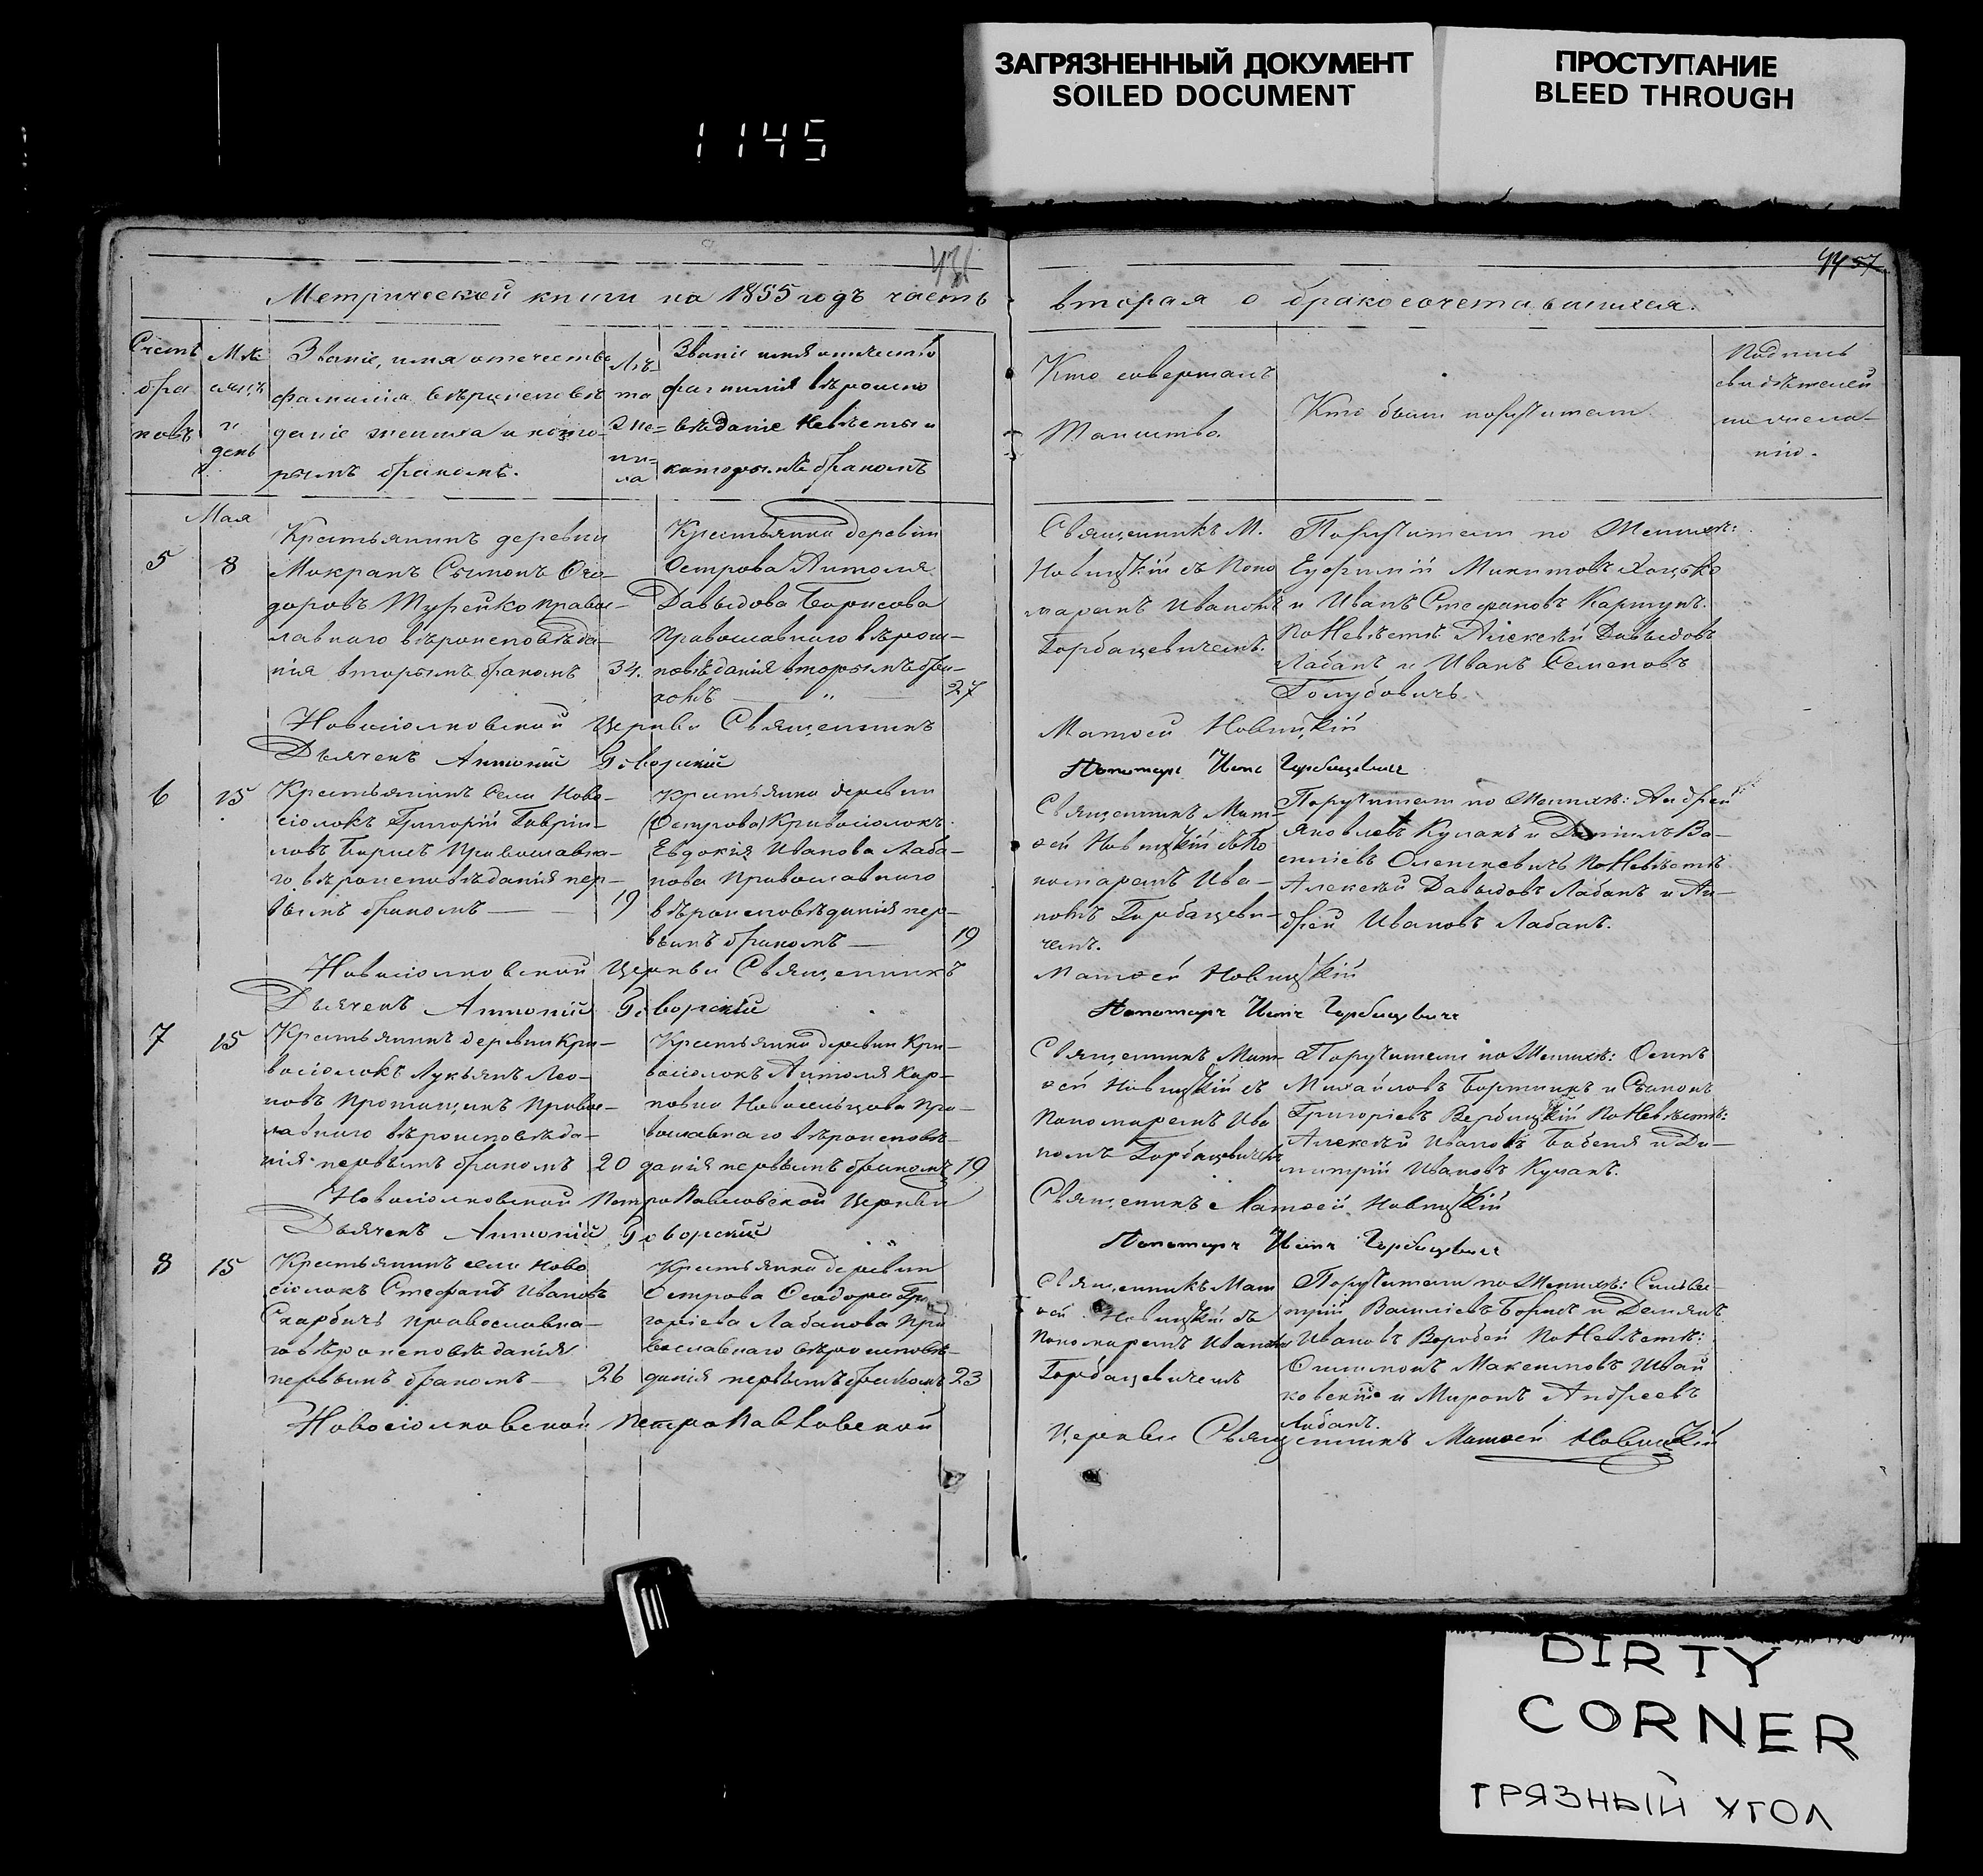 ЗАГРЯЗНЕННЫЙ ДОКУМЕНТ
SOILED DOCUMENT
ПРОСТУПАНИЕ
BLEED THROUGH
1145
44 57
Метрической книги на 1855 годъ часть
вторая о бракосочетавшихся.
Счетъ
бра
ковъ
Мѣ
сяцъ
и
день
Званіе, имя отечество
фамилія вѣроисповѣ
даніе жениха и кото-
рымъ бракомъ.
Лѣ
та
жe=
ни=
ха
Званіе имя отчество
фамилія вѣроиспо
вѣданіе невѣсты и
которымъ бракомъ
Кто совершалъ
Таинство.
Кто были поручители
Подпись
свидѣтелей
по желa-
нію.
Мая
5
8
Крестьянинъ деревни
Макранъ Сѵмонъ Ѳео-
доровъ Турейко правос-
лавнаго вѣроисповѣда-
нія вторымъ бракомъ
34.
Крестьянка деревни
Острова Антоля
Давыдова Борисова
Православнаго вѣроис-
повѣданія вторымъ бра-
комъ — " —
27
Священникъ М.
Новицкій съ Поно
маремъ Иваномъ
Горбацевичемъ.
Поручители по Женихѣ:
Еуфимій Микитовъ Хацько
и Иванъ Стефановъ Картунъ.
По Невѣстѣ Алексѣй Давыдовъ
Лабанъ и Иванъ Семеновъ
Голубовичъ
Новосіолковской Церкви Священникъ
Матѳей Новицкій
Дьячекъ Антоній Говорскій
Пономарь Иванъ Горбацевичъ
6
15
Крестьянинъ села Ново-
сіолокъ Григорій Гаврiи-
ловъ Борисъ Православна-
го вѣроисповѣданія пер-
вымъ бракомъ —
19
Крестьянка деревни
(Острова) Кривосіолокъ
Евдокія Иванова Лаба-
нова Православнаго
вѣроисповѣданія пер-
вымъ бракомъ —
19
Священникъ Мат-
ѳей Новицкій съ По
номаремъ Ива-
номъ Горбацеви-
чемъ.
Поручители по Женихѣ: Андрей
Яковлевъ Кулакъ и Даніилъ Ва-
силіевъ Олешкевичъ по Невѣстѣ
Алексѣй Давыдовъ Лабанъ и Ан-
дрей Ивановъ Лабанъ.
Новосіолковской Церкви Священникъ
Матѳей Новицкій
Дьячекъ Антоній Говорскій
Пономарь Иванъ Горбацевичъ
7
15
Крестьянинъ деревни Кри-
восіолокъ Лукьянъ Лео-
новъ Протащикъ Правос-
лавнаго вѣроисповѣда-
нія первымъ бракомъ
20
Крестьянка деревни Кри-
восіолокъ Антоля Кар-
повна Новосельцова Пра-
вославнаго вѣроисповѣ-
данія первымъ бракомъ
19
Священникъ Мат-
ѳей Новицкій съ
Пономаремъ Ива
номъ Горбацевичемъ
Поручители по Женихѣ: Осипъ
Михайловъ Бортникъ и Сѵмонъ
Григорiевъ Вербицкій по Невѣстѣ:
Алексѣй Ивановъ Бабеня и Ди-
митрій Ивановъ Кулакъ.
Новосіолковской Петро Павловской Церкви
Священникъ Матѳей Новицкій
Дьячекъ Антоній Говорскій
Пономарь Иванъ Горбацевичъ
8
15
Крестьянинъ села Ново
сіолокъ Стефанъ Ивановъ
Скарбичъ православна-
го вѣроисповѣданія
первымъ бракомъ —
26
Крестьянка деревни
Острова Ѳеодора Гри
горіева Лабанова Пра
вославнаго вѣроисповѣ-
данія первымъ бракомъ
23
Священникъ Мат
ѳей Новицкій съ
Пономаремъ Иваномъ
Горбацевичемъ
Поручители по Женихѣ:
Василіевъ Борисъ и Демянъ
Ивановъ Воробей по Невѣстѣ:
Максимовъ Швай
ковскій и Миронъ Андреевъ
Лабанъ.
Новосіолковской Петро Павловской
Церкви Священникъ Матѳей Новицкій
DIRTY
CORNER
ГРЯЗНЫЙ УГОЛ